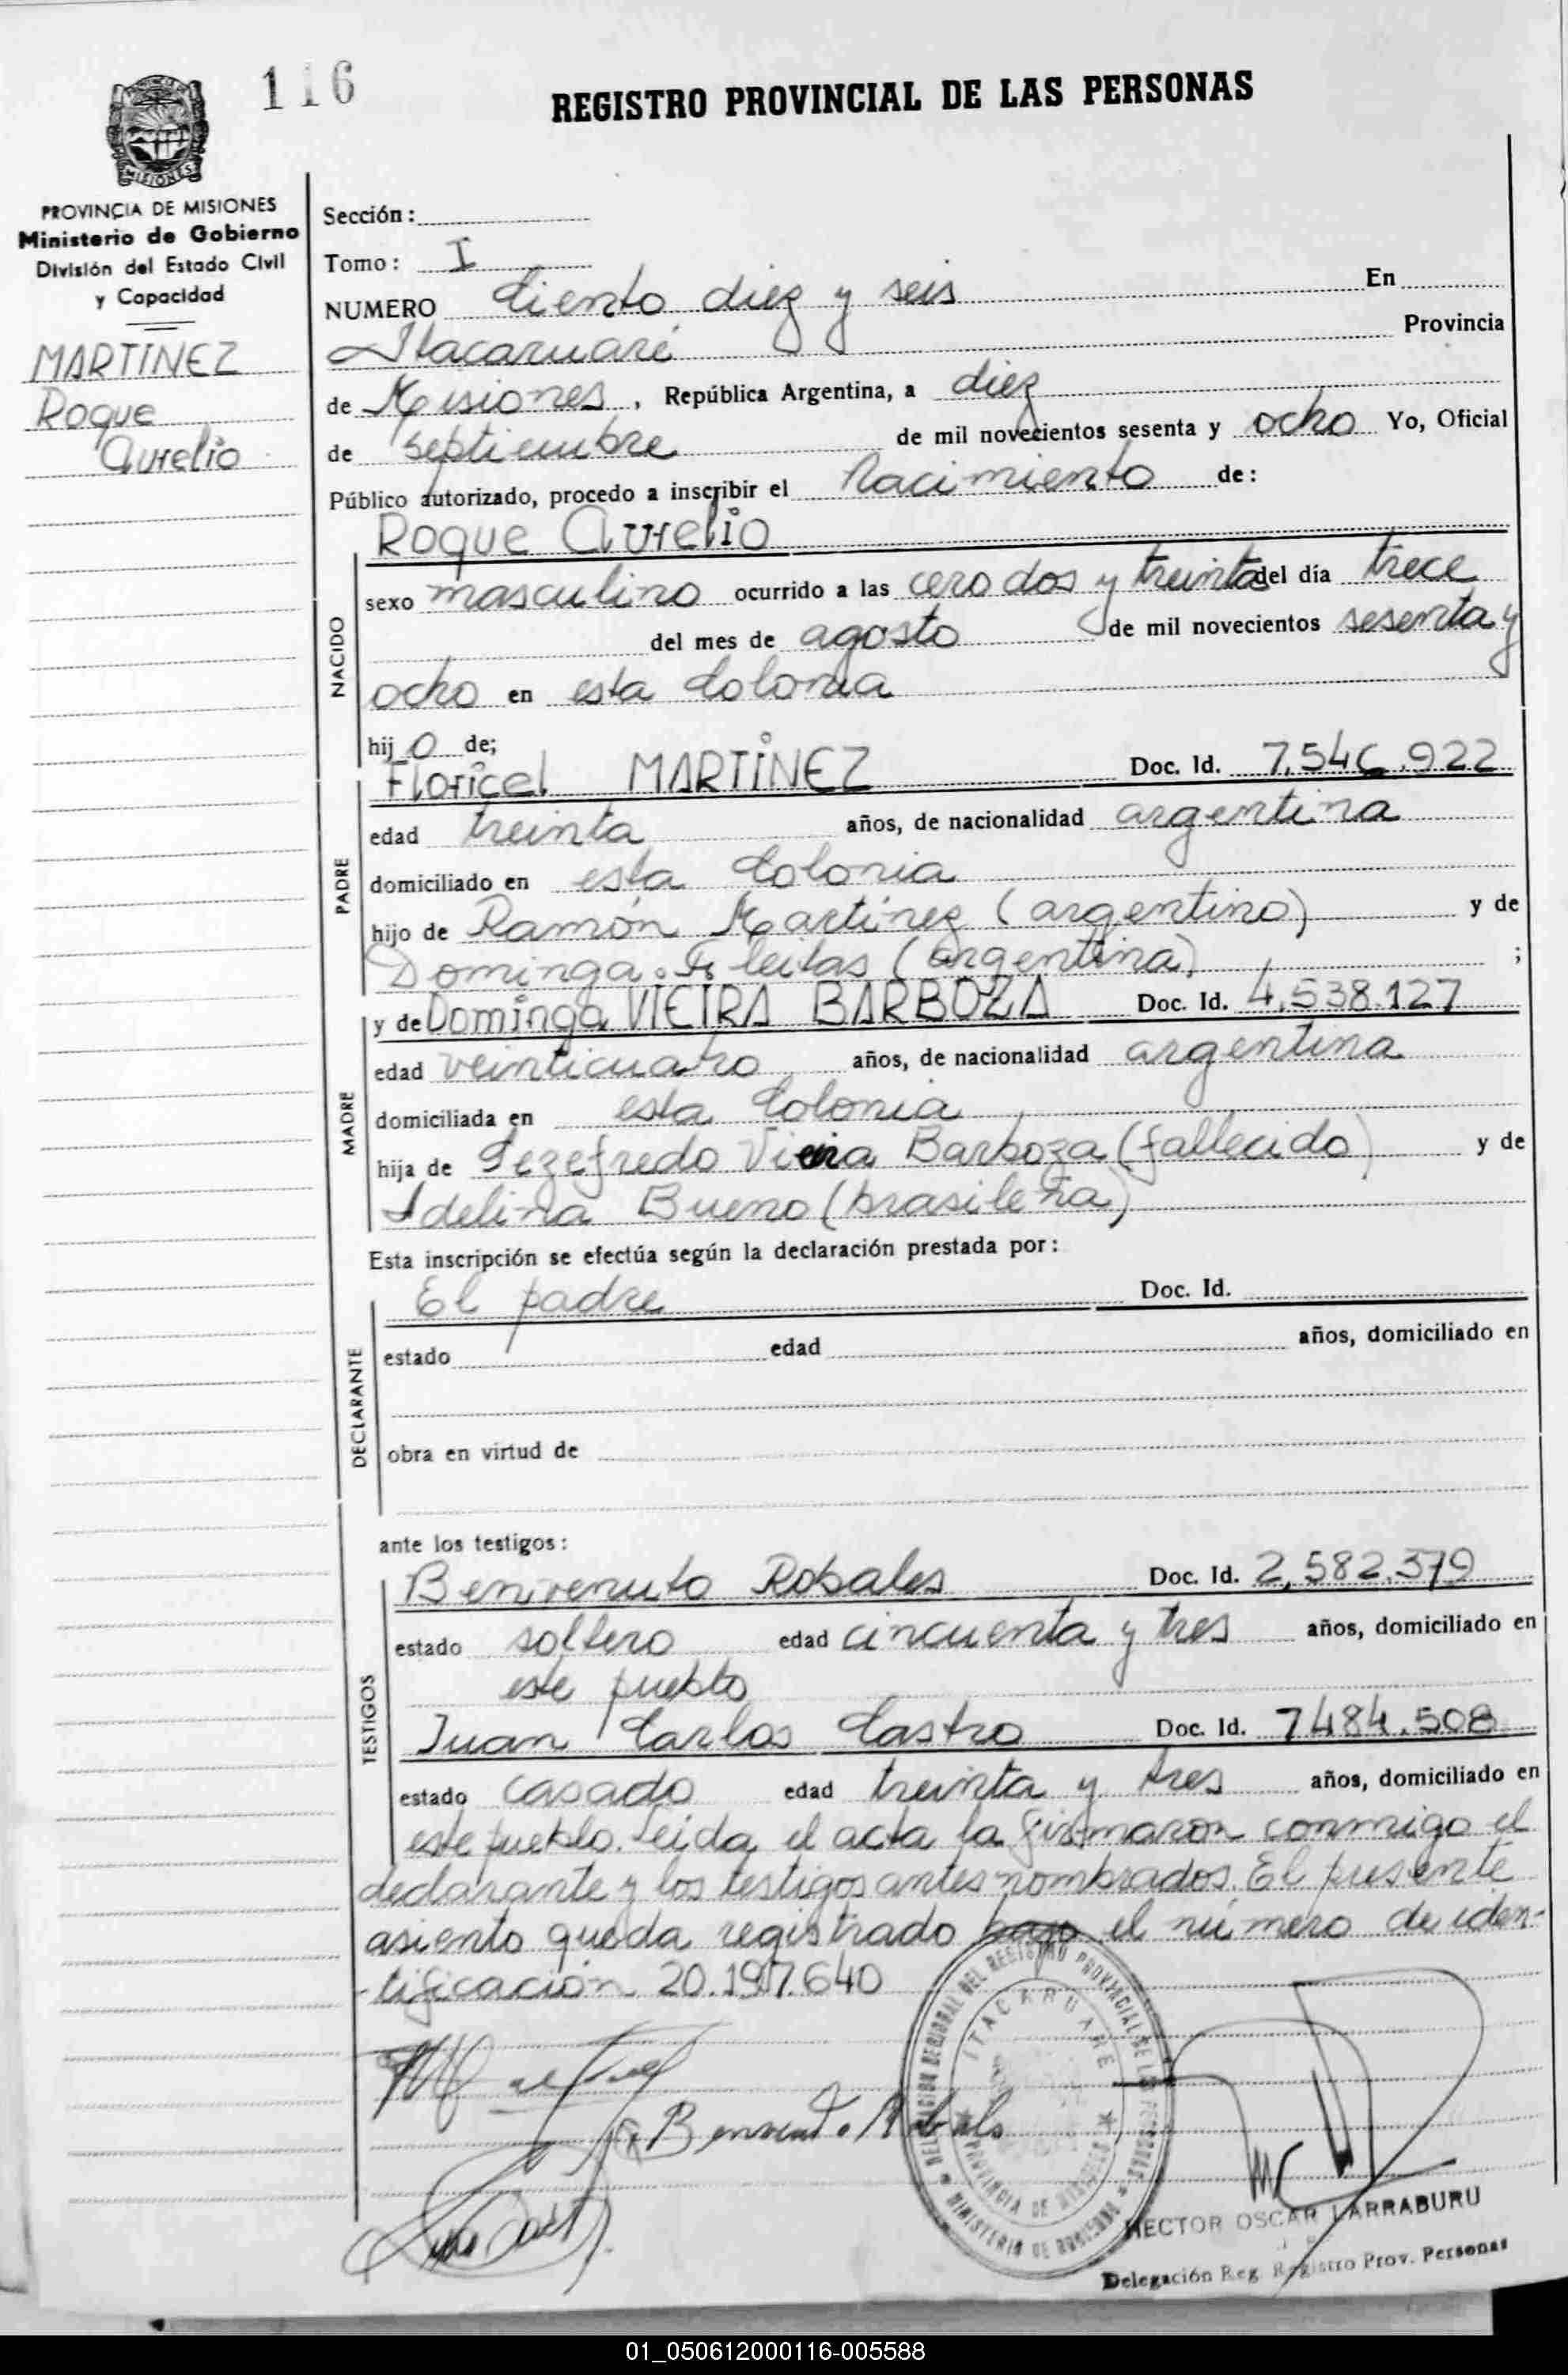 116
REGISTRO PROVINCIAL DE LAS PERSONAS
MISIONES
PROVINCIA DE MISIONES
Ministerio de Gobierno
División del Estado Civil
y Capacidad
MARTINEZ
Roque
Aurelio
Sección:
Tomo: I
NUMERO Ciento diez y seis En
Itacaruaré Provincia
de Misiones, República Argentina, a diez
de septiembre de mil novecientos sesenta y ocho Yo, Oficial
Público autorizado, procedo a inscribir el Nacimiento de:
Roque Aurelio
NACIDO
sexo masculino ocurrido a las cero dos y treinta del día trece
del mes de agosto de mil novecientos sesenta y
ocho en esta Colonia
hijo de;
PADRE
Floricel MARTINEZ Doc. Id. 7.546.922
edad treinta años, de nacionalidad argentina
domiciliado en esta Colonia
hijo de Ramón Martinez (argentino) y de
Dominga Fleitas (argentina) ;
MADRE
y de Dominga VIEIRA BARBOZA Doc. Id. 4.538.127
edad veinticuatro años, de nacionalidad argentina
domiciliada en esta Colonia
hija de Sezefredo Vieira Barboza (fallecido) y de
Idelina Bueno (brasileña)
Esta inscripción se efectúa según la declaración prestada por:
DECLARANTE
El padre Doc. Id.
estado edad años, domiciliado en
obra en virtud de
ante los testigos:
TESTIGOS
Benvenuto Robales Doc. Id. 2,582.379
estado soltero edad cincuenta y tres años, domiciliado en
este pueblo
Juan Carlos Castro Doc. Id. 7484.508
estado casado edad treinta y tres años, domiciliado en
este pueblo. Leida el acta la firmaron conmigo el
declarante y los testigos antes nombrados. El presente
asiento queda registrado bajo el número de iden-
-tificación 20.197.640
DELEGACION REGIONAL DEL REGISTRO PROVINCIAL DE LAS PERSONAS
ITACARUARE
PROVINCIA DE MISIONES
MINISTERIO DE GOBIERNO
HECTOR OSCAR LARRABURU
Delegación Reg. Registro Prov. Personas
01_050612000116-005588